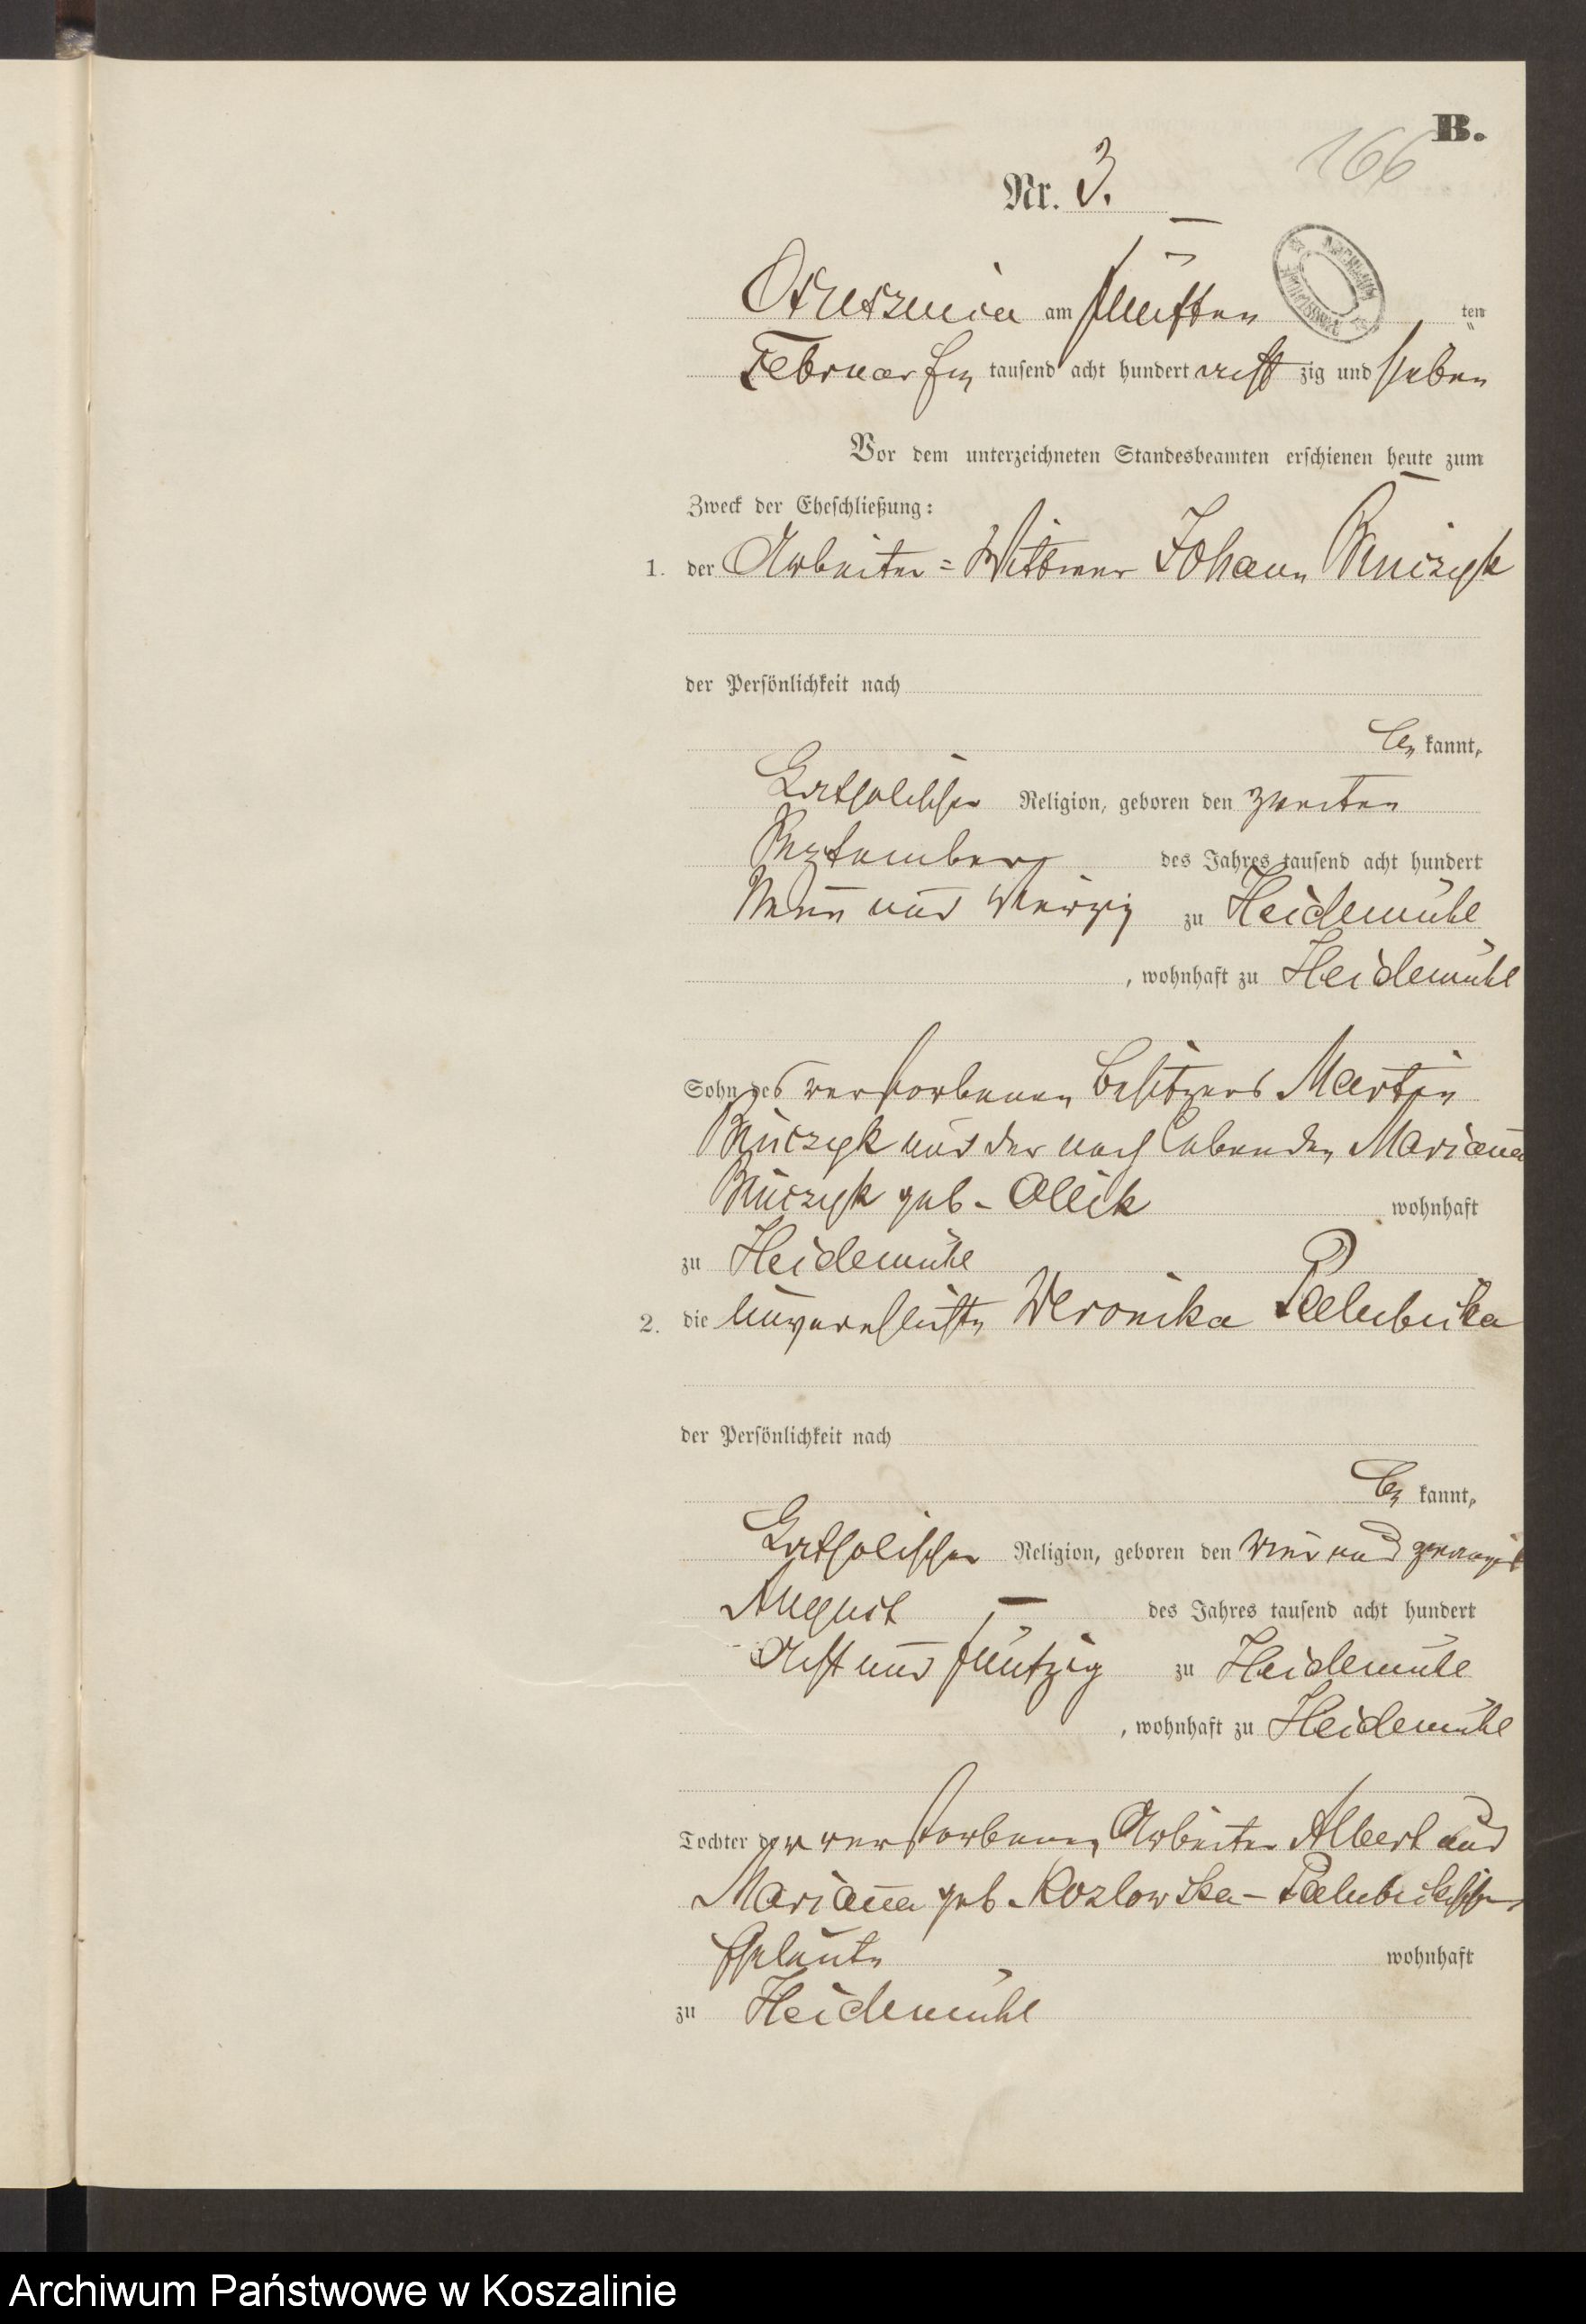 B.
166
Nr. 3.
am fünften ten
Februar ein tausend acht hundert acht zig und sieben
Vor dem unterzeichneten Standesbeamten erschienen heute zum
Zweck der Eheschließung:
1. der Arbeiter = Wittwer Johann
der Persönlichkeit nach
be kannt,
Katholischer Religion, geboren den zweiten
September des Jahres tausend acht hundert
Neun und Vierzig zu Heidemühl
, wohnhaft zu Heidemühl
Sohn des verstorbenen Besitzers Martin
und der noch lebenden Marianna
geb. Ollik wohnhaft
zu Heidemühl
2. die unverehelichte Veronika Palubicka
der Persönlichkeit nach
be kannt,
Katholischer Religion, geboren den vier und zwanzigst
August des Jahres tausend acht hundert
Acht und fünfzig zu Heidemühl
, wohnhaft zu Heidemühl
Tochter der verstorbenen Arbeiter Albert und
Marianna geb. Kozlowska - Palubickischen
Eheleute wohnhaft
zu Heidemühl
Archiwum Państwowe w Koszalinie